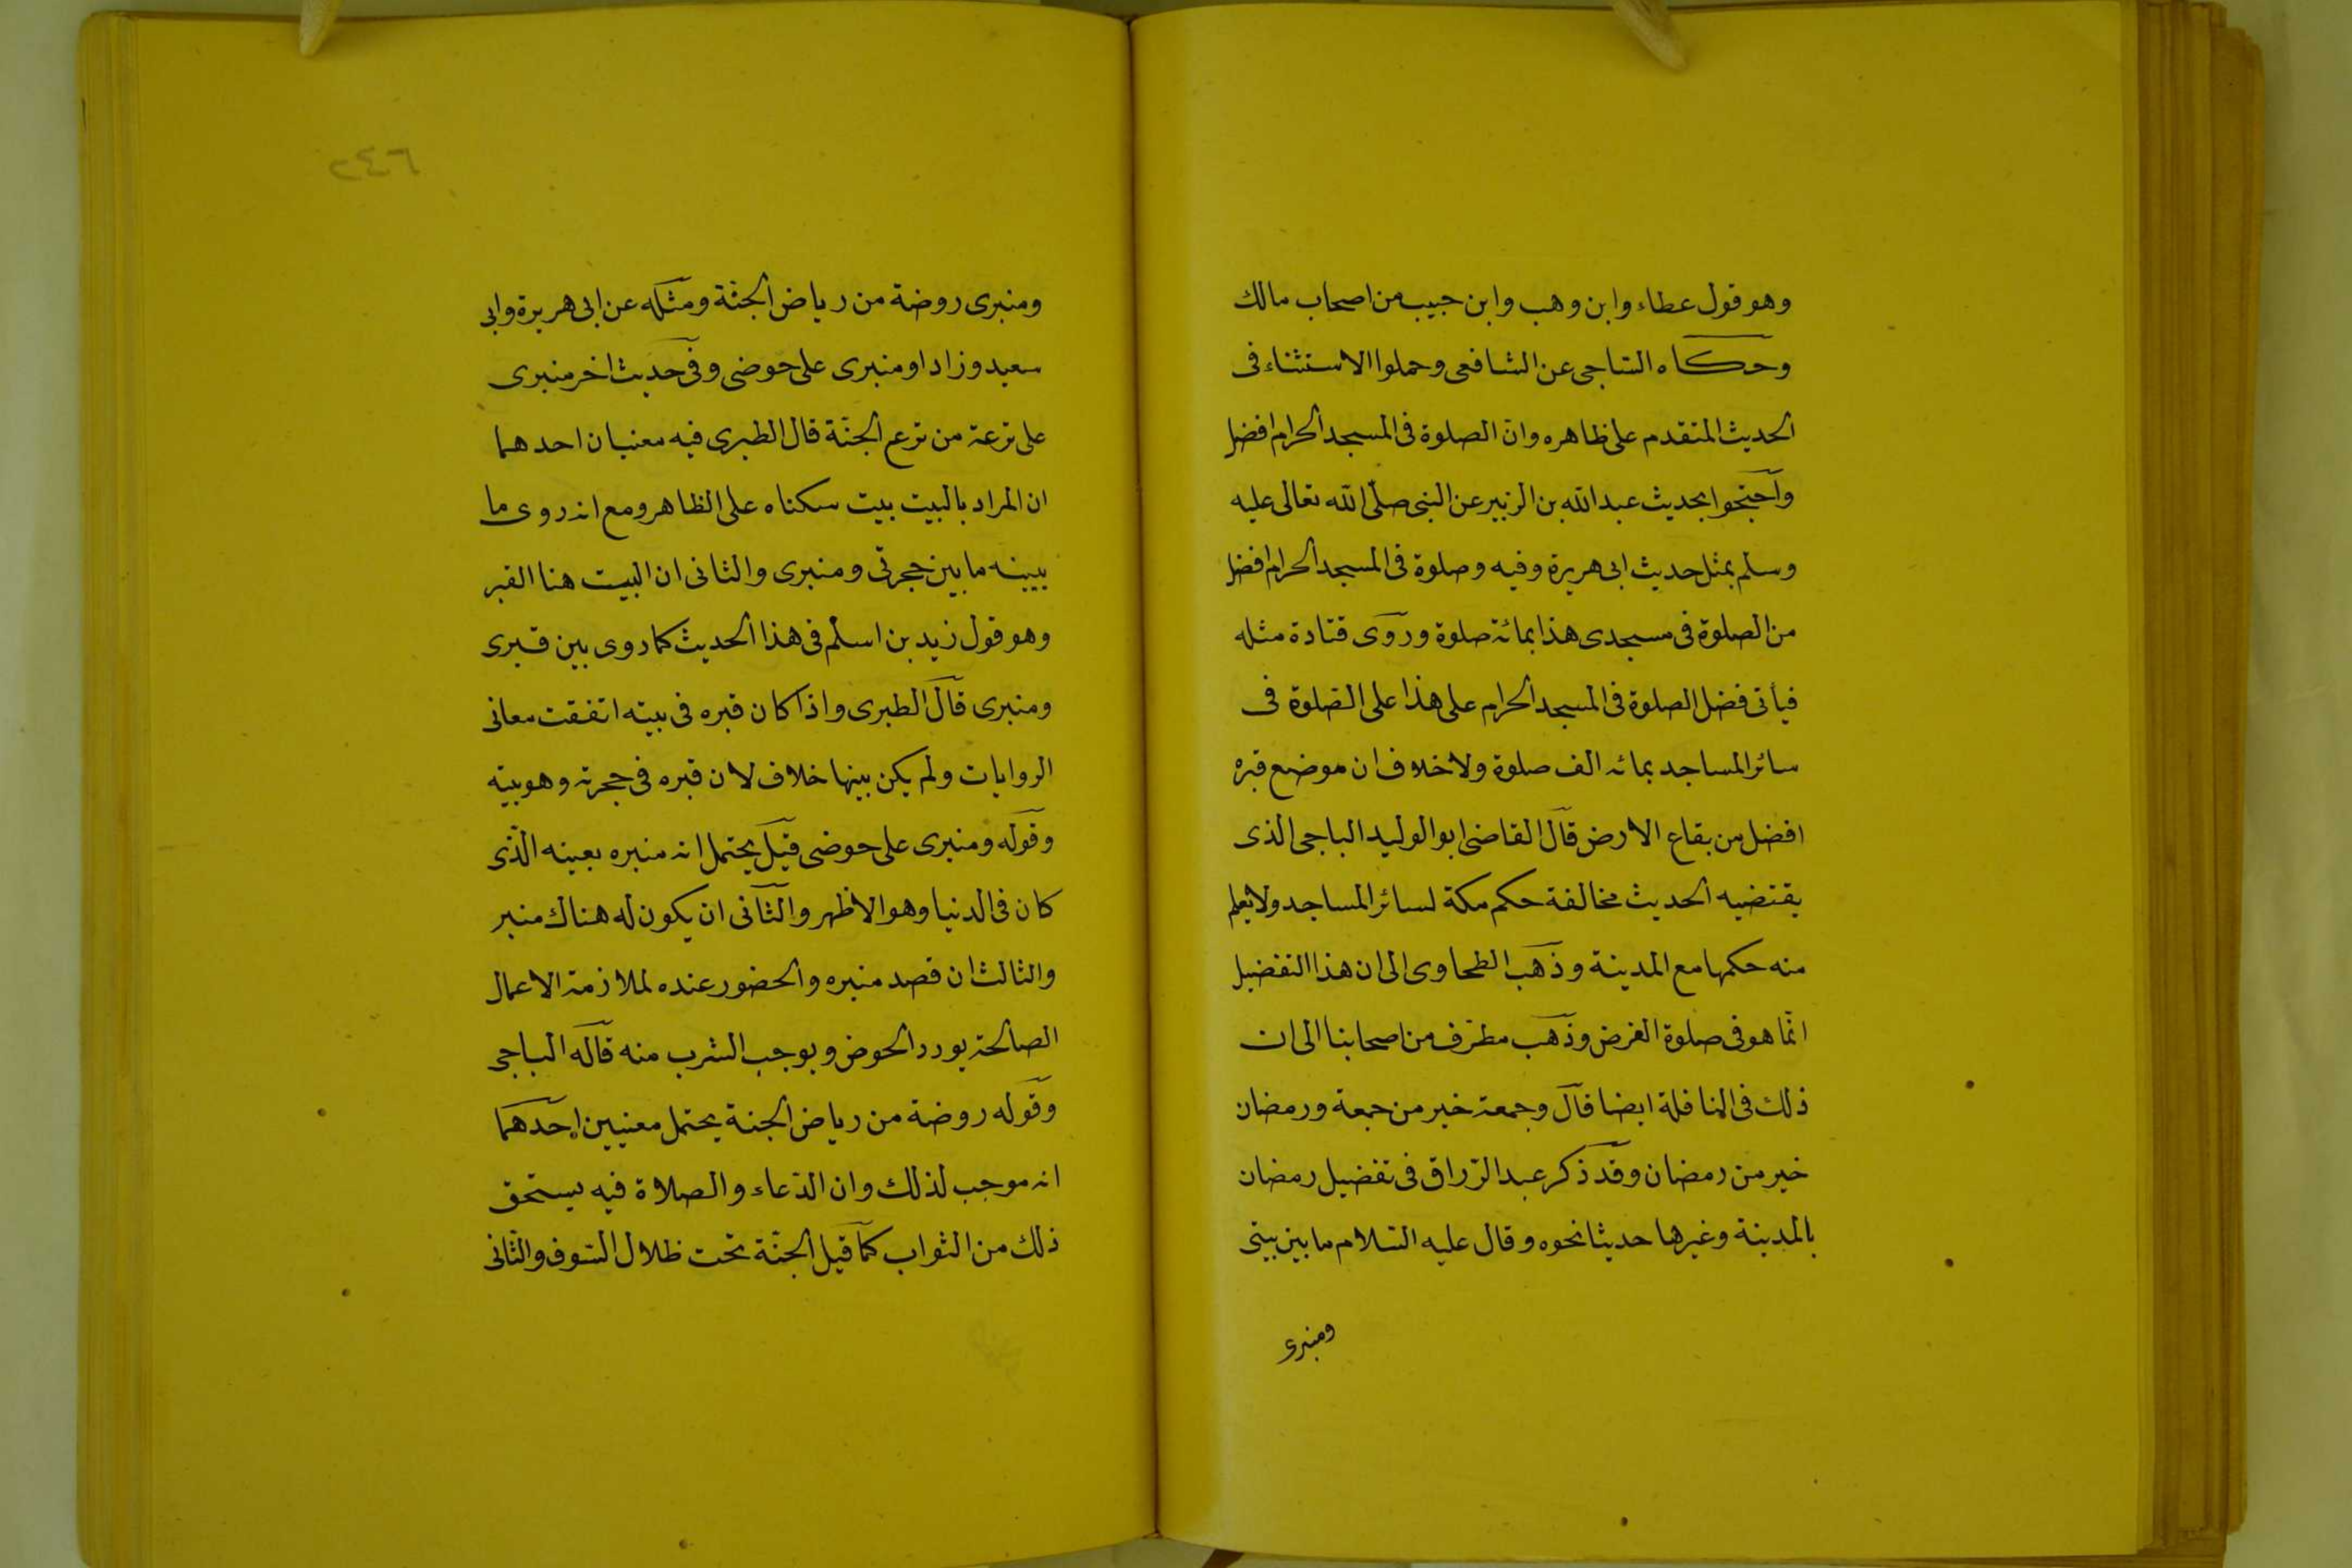 وهو قول عطاء وابن وهب وابن حبيب من اصحاب مالك
وحكاه الساجى عن الشافعى وحملوا الاستثناء فى
الحديث المتقدم على ظاهره وان الصلوة فى المسجد الحرام افضل
واحتجوا بحديث عبد الله بن الزبير عن النبى صلّى الله تعالى عليه
وسلم بمثل حديث ابى هريرة وفيه وصلوة فى المسجد الحرام افضل
من الصلوة فى مسجدى هذا بمائة صلوة وروى قتادة مثله
فيأتى فضل الصلوة فى المسجد الحرام على هذا على الصّلوة فى
سائر المساجد بمائة الف صلوة ولا خلاف ان موضع قبره
افضل من بقاع الارض قال القاضى ابو الوليد الباجى الذى
يقتضيه الحديث مخالفة حكم مكة لسائر المساجد ولا يعلم
منه حكمها مع المدينة وذهب الطحاوى الى ان هذا التفضيل
انّما هو فى صلوة الفرض وذهب مطرّف من اصحابنا الى ان
ذلك فى النافلة ايضا قال وجمعة خير من جمعة ورمضان
خير من رمضان وقد ذكر عبد الرّزاق فى تفضيل رمضان
بالمدينة وغيرها حديثا نحوه وقال عليه السّلام ما بين بيتى
ومنبرى
٢٤٦
ومنبرى روضة من رياض الجنّة ومثله عن ابى هريرة وابى
سعيد وزاد او منبرى على حوضى وفى حديث اخر منبرى
على ترعة من ترع الجنّة قال الطبرى فيه معنيان احدهما
ان المراد بالبيت بيت سكناه على الظاهر ومع انه روى ما
يبينه ما بين حجرتى ومنبرى والثانى ان البيت هنا القبر
وهو قول زيد بن اسلم فى هذا الحديث كما روى بين قبرى
ومنبرى قال الطبرى واذا كان قبره فى بيته اتفقت معانى
الروايات ولم يكن بينها خلاف لان قبره فى حجرته وهو بيته
وقوله ومنبرى على حوضى قيل يحتمل انه منبره بعينه الّذى
كان فى الدنيا وهو الاظهر والثّانى ان يكون له هناك منبر
والثالث ان قصد منبره والحضور عنده لملازمة الاعمال
الصالحة يورد الحوض ويوجب الشرب منه قاله الباجى
وقوله روضة من رياض الجنة يحتمل معنيين احدهما
انه موجب لذلك وان الدّعاء والصلاة فيه يستحق
ذلك من الثواب كما قيل الجنّة تحت ظلال السّيوف والثّانى